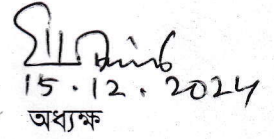 15.12.2024
অধ্যক্ষ